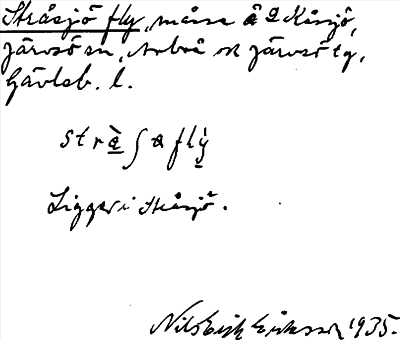 Stråsjö fly, mosse å 2 Kåsjö,
Järvsö sn, Arbrå ok Järvsö tg,
Gävleb. l.
strà̱ʃɵ flỳ̱
Ligger i Stråsjö.
Nils Erik Eriksson 1935.